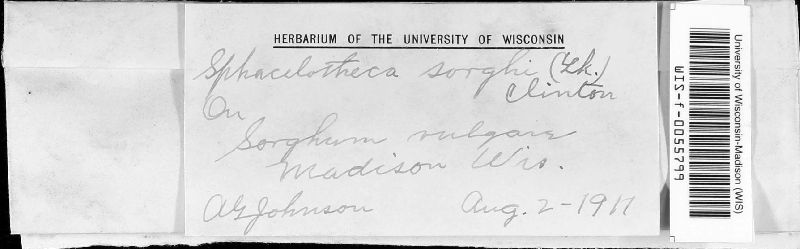 HERBARIUM OF THE UNIVERSITY OF WISCONSIN
Sphacelotheca sorghi (Lk.)
Clinton
On
Sorghum vulgare
Madison Wis.
AG Johnson Aug. 2-1911
WIS-f-0055799
University of Wisconsin-Madison (WIS)